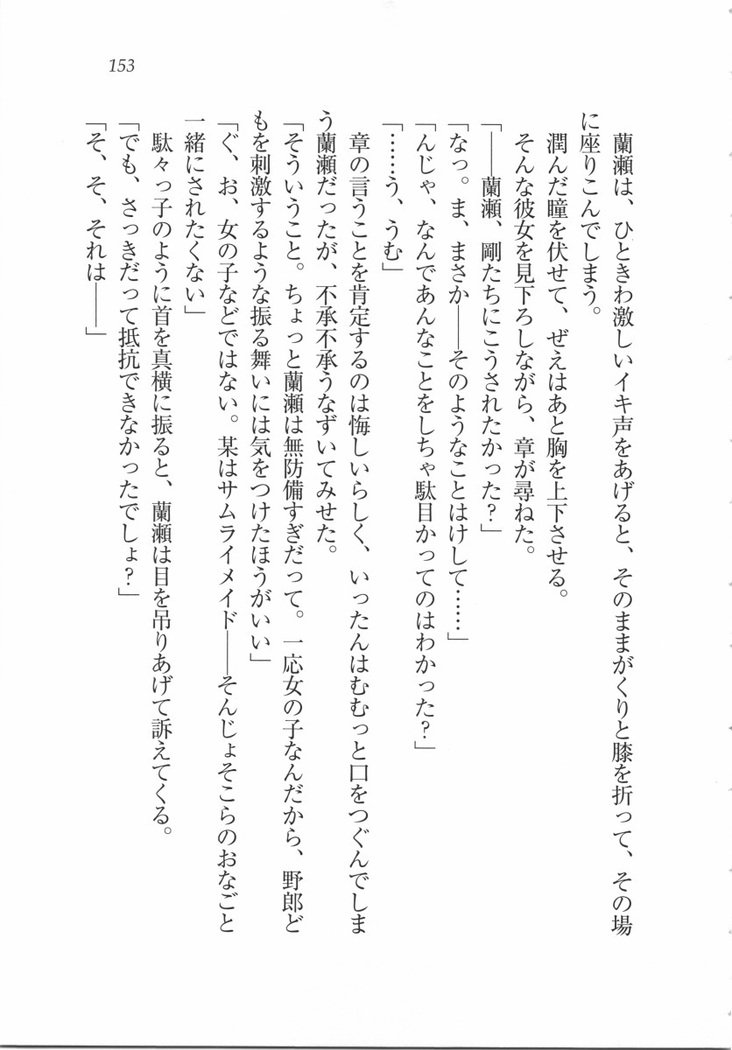 153
蘭瀬は、ひときわ激しいイキ声をあげると、そのままがくりと膝を折って、その場
に座りこんでしまう。
潤んだ瞳を伏せて、ぜえはあと胸を上下させる。
そんな彼女を見下ろしながら、章が尋ねた。
「――蘭瀬、剛たちにこうされたかった?」
「なっ。ま、まさか――そのようなことはけして……」
「んじゃ、なんであんなことをしちゃ駄目かってのはわかった?」
「……う、うむ」
章の言うことを肯定するのは悔しいらしく、いったんはむむっと口をつぐんでしま
う蘭瀬だったが、不承不承うなずいてみせた。
「そういうこと。ちょっと蘭瀬は無防備すぎだって。一応女の子なんだから、野郎ど
もを刺激するような振る舞いには気をつけたほうがいい」
「ぐ、お、女の子などではない。某はサムライメイド――そんじょそこらのおなごと
一緒にされたくない」
駄々っ子のように首を真横に振ると、蘭瀬は目を吊りあげて訴えてくる。
「でも、さっきだって抵抗できなかったでしょ?」
「そ、そ、それは――」